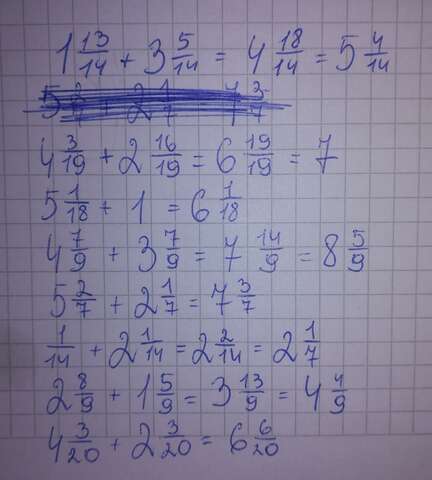 1 13/14 + 3 5/14 = 4 18/14 = 5 4/14
4 3/19 + 2 16/19 = 6 19/19 = 7
5 1/18 + 1 = 6 1/18
4 7/9 + 3 7/9 = 7 14/9 = 8 5/9
5 2/7 + 2 1/7 = 7 3/7
1/14 + 2 1/14 = 2 2/14 = 2 1/7
2 8/9 + 1 5/9 = 3 13/9 = 4 4/9
4 3/20 + 2 3/20 = 6 6/20